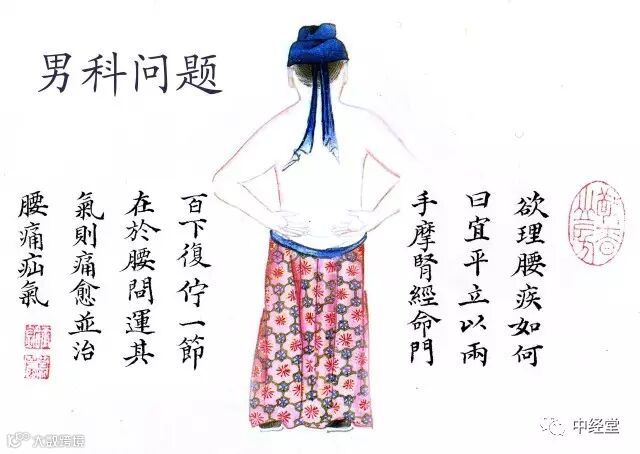 男科问题
欲理腰疾如何
曰宜平立以兩
手摩腎經命門
百下復佇一節
在於腰問運其
氣則痛愈並治
腰痛疝氣
中经堂
大数跨境